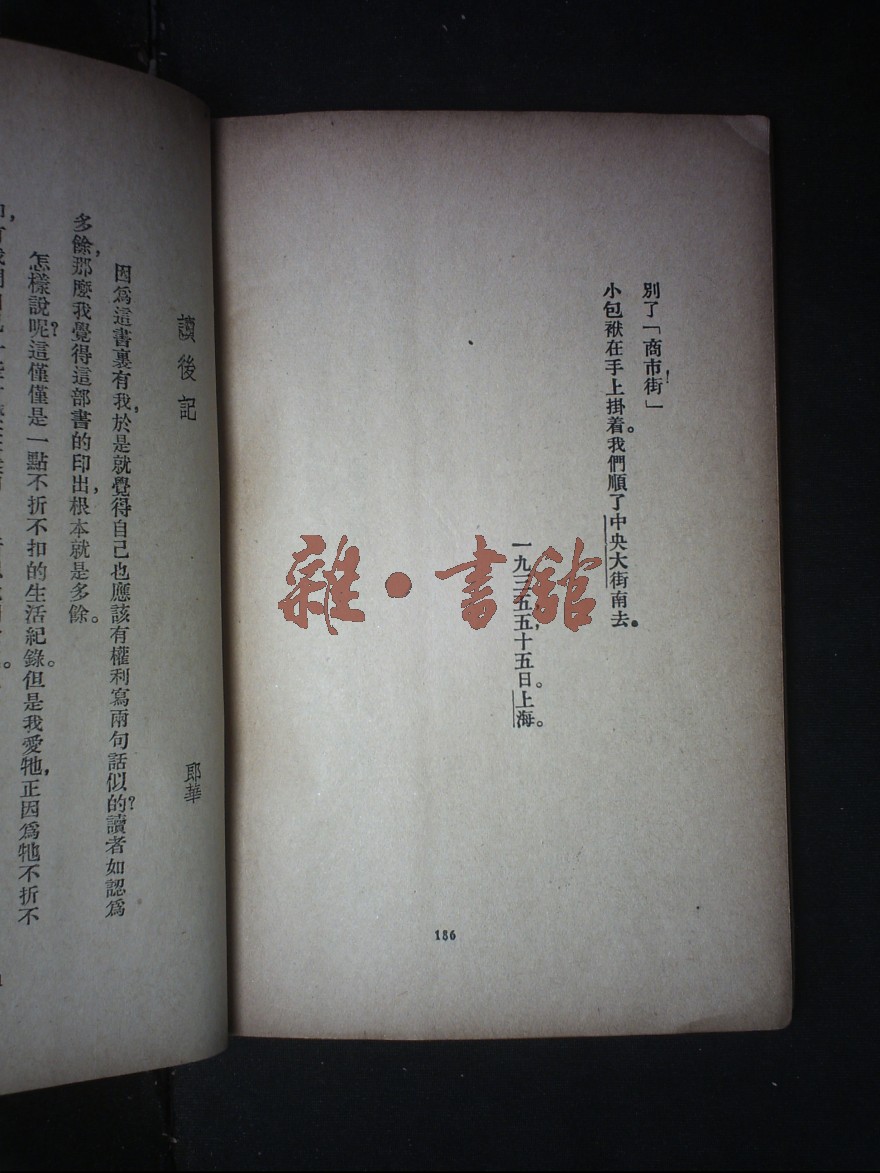 別了「商市街」!
小包袱在手上掛着。我們順了中央大街南去。
一九三五,五,十五日。上海。
186
雜·書舘
讀後記
郎華
因爲這書裏有我,於是就覺得自己也應該有權利寫兩句話似的?讀者如認爲
多餘,那麽我覺得這部書的印出,根本就是多餘。
怎樣說呢?這僅僅是一點不折不扣的生活紀錄。但是我愛牠,正因爲牠不折不